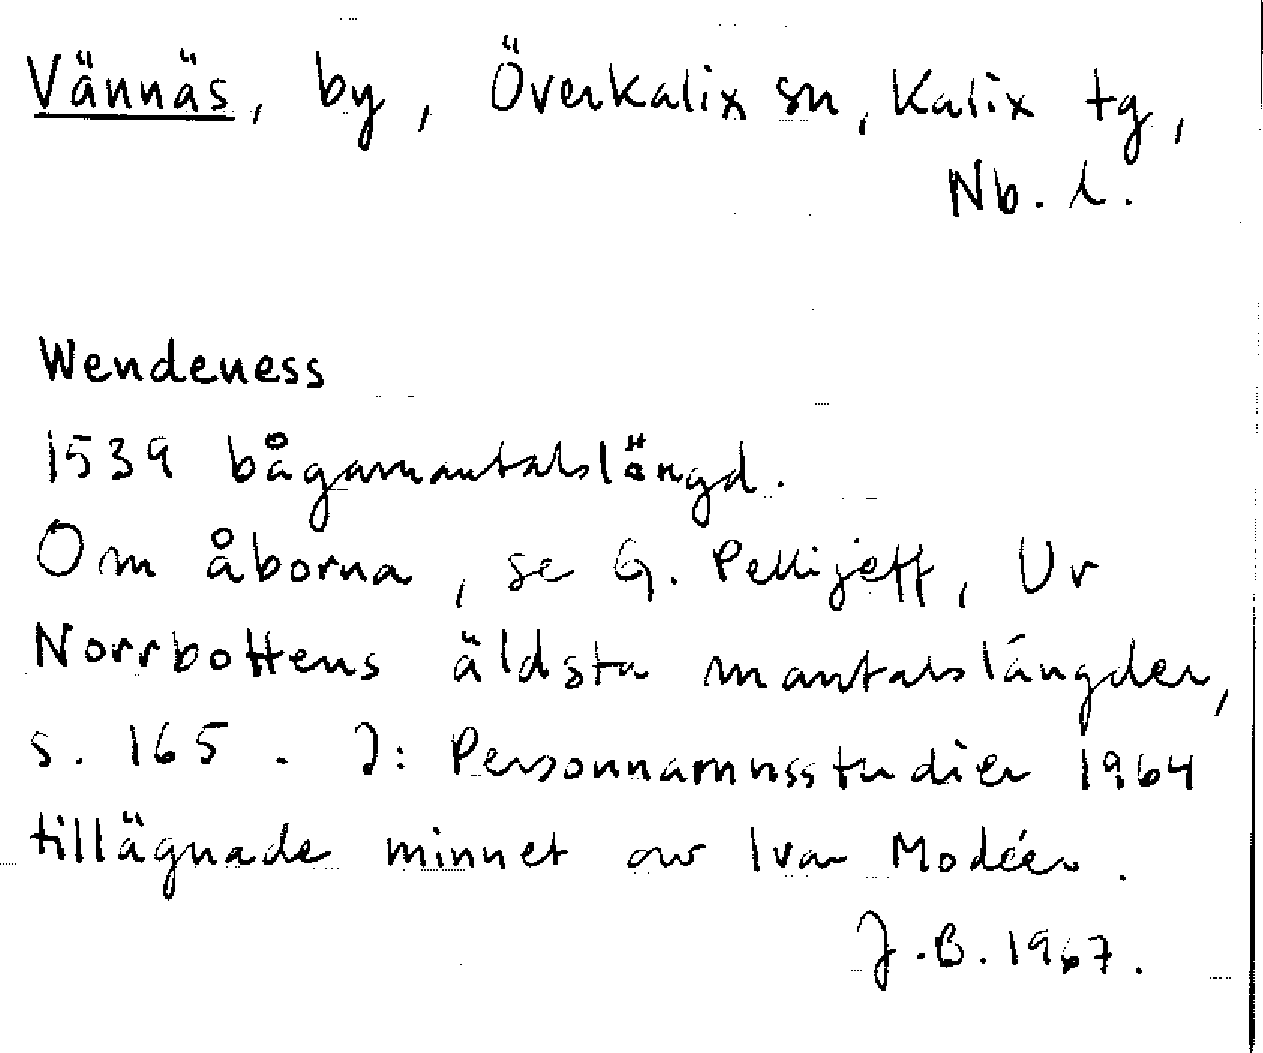 Vännäs, by, Överkalix sn, Kalix tg,
Nb. l.
Wendeness
1539 bågamantalslängd.
Om åborna, se G. Pellijeff, Ur
Norrbottens äldsta mantalslängder,
s. 165. I: Personnamnsstudier 1964
tillägnade minnet av Ivar Modéer.
J.B. 1967.